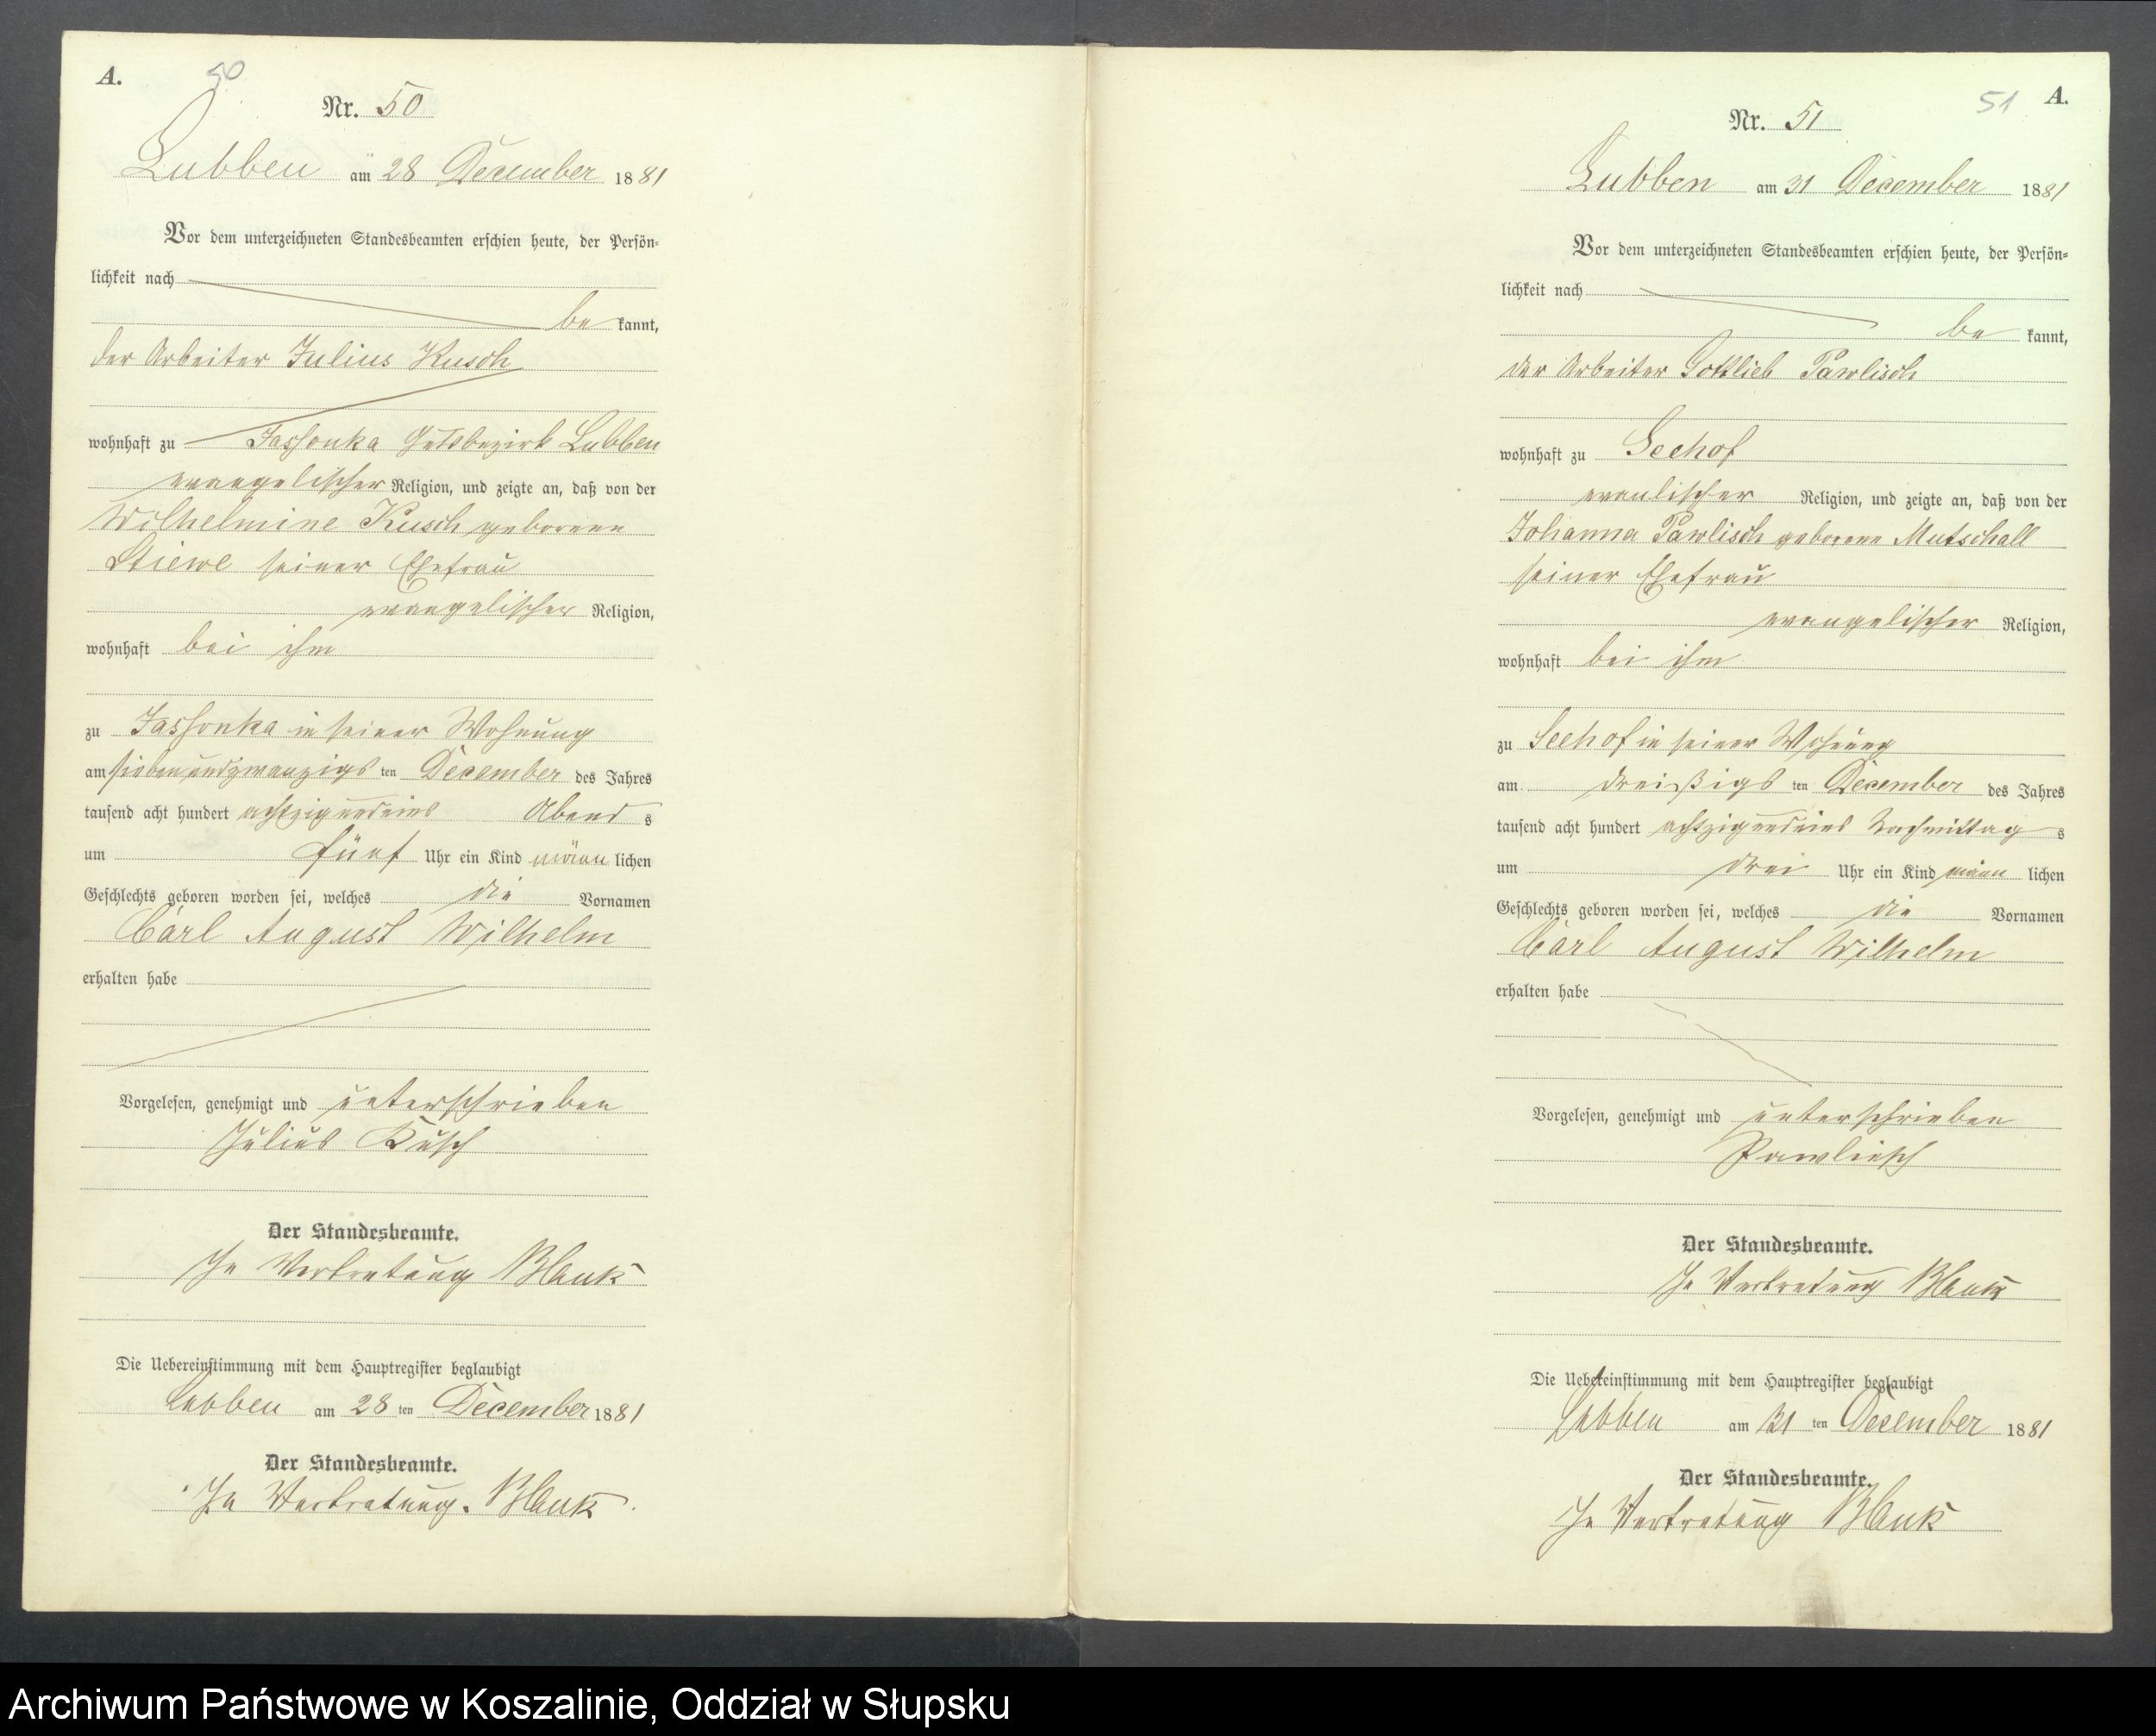 A.
50
Nr. 50
Lubben am 28 December 1881
Vor dem unterzeichneten Standesbeamten erschien heute, der Persön=
lichkeit nach
be kannt,
der Arbeiter Julius Kusch
wohnhaft zu Jassonka Gutsbezirk Lubben
evangelischer Religion, und zeigte an, daß von der
Wilhelmine Kusch geborene
Stiewe seiner Ehefrau
evangelischer Religion,
wohnhaft bei ihm
zu Jassonka in seiner Wohnung
am siebenundzwanzigs ten December des Jahres
tausend acht hundert achtzigundeins Abend s
um fünf Uhr ein Kind männ lichen
Geschlechts geboren worden sei, welches die Vornamen
Carl August Wilhelm
erhalten habe
Vorgelesen, genehmigt und unterschrieben
Julius Kusch
Der Standesbeamte.
In Vertretung Blank
Die Uebereinstimmung mit dem Hauptregister beglaubigt
Lubben am 28 ten December 1881
Der Standesbeamte.
In Vertretung. Blank.
51
A.
Nr. 51
Lubben am 31 December 1881
Vor dem unterzeichneten Standesbeamten erschien heute, der Persön=
lichkeit nach
be kannt,
der Arbeiter Gottlieb Pawlisch
wohnhaft zu Seehof
evanlischer Religion, und zeigte an, daß von der
Johanna Pawlisch geborene Mutschall
seiner Ehefrau
evangelischer Religion,
wohnhaft bei ihm
zu Seehof in seiner Wohnung
am dreißigs ten December des Jahres
tausend acht hundert achtzigundeins Nachmittag s
um drei Uhr ein Kind männ lichen
Geschlechts geboren worden sei, welches die Vornamen
Carl August Wilhelm
erhalten habe
Vorgelesen, genehmigt und unterschrieben
Pawliesch
Der Standesbeamte.
In Vertretung Blank
Die Uebereinstimmung mit dem Hauptregister beglaubigt
Lubben am 31 ten December 1881
Der Standesbeamte.
In Vertretung Blank
Archiwum Państwowe w Koszalinie, Oddział w Słupsku